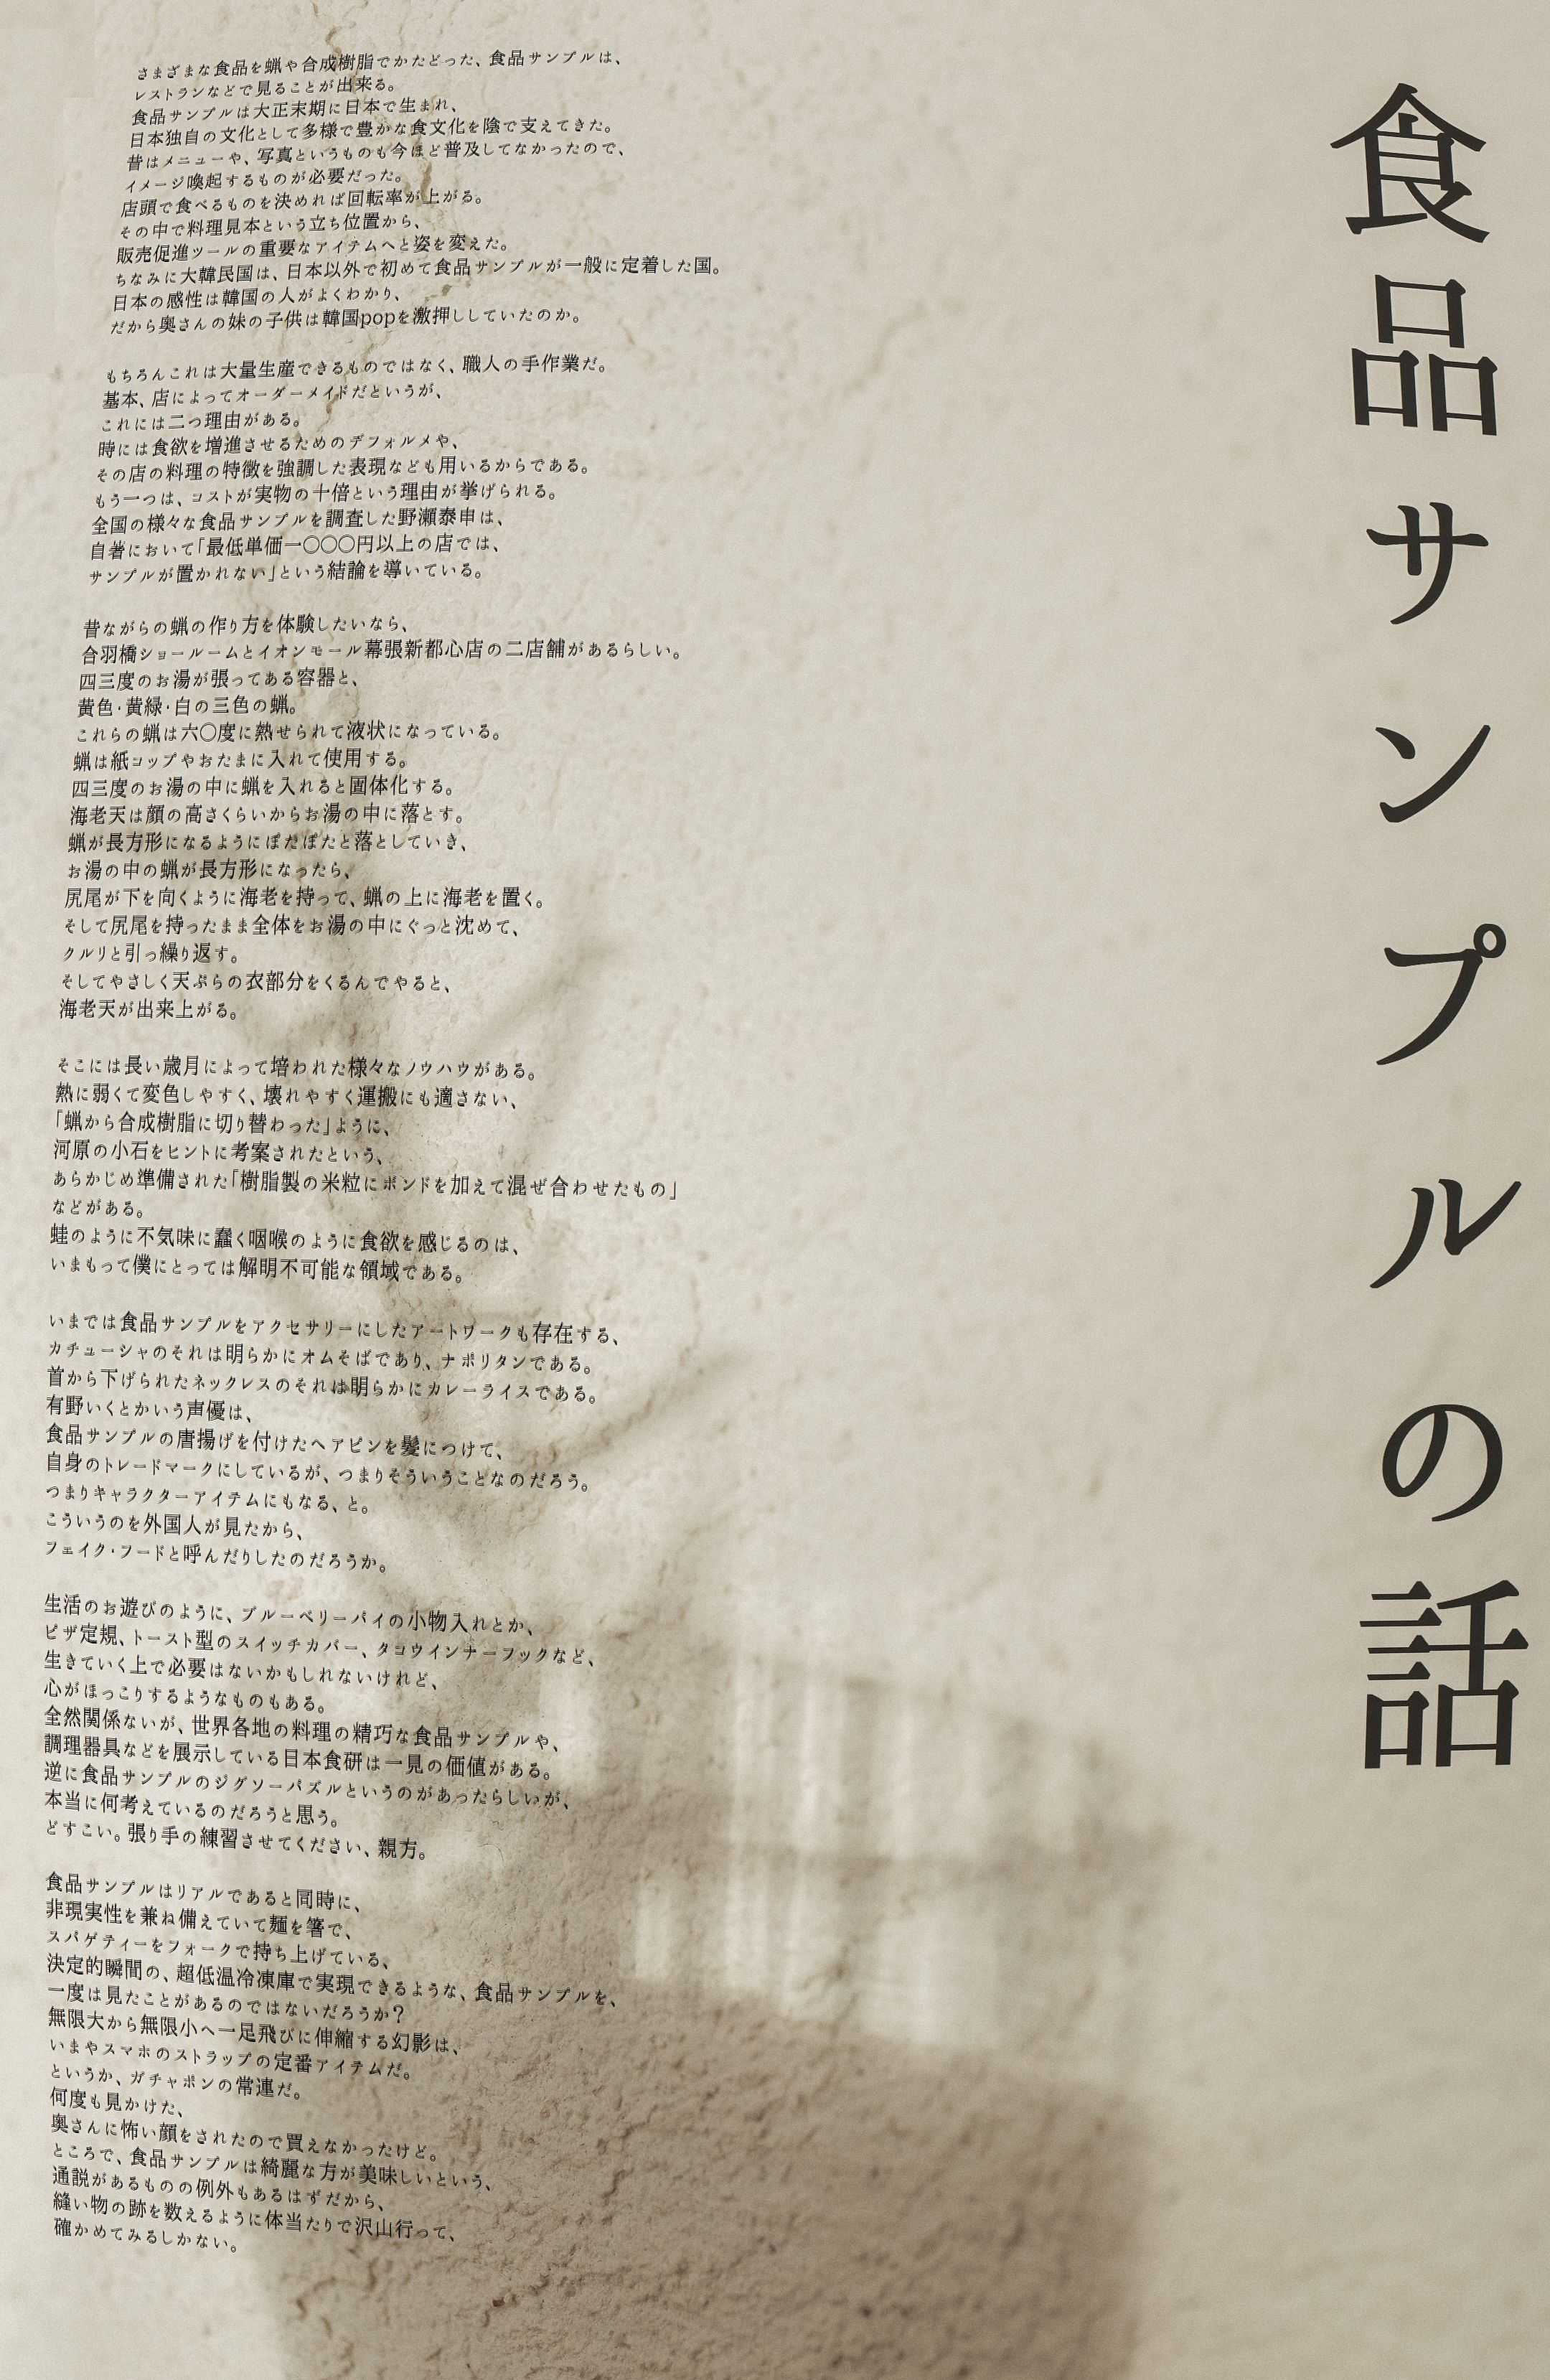 食品サンプルの話
さまざまな食品を蝋や合成樹脂でかたどった、食品サンプルは、
レストランなどで見ることが出来る。
食品サンプルは大正末期に日本で生まれ、
日本独自の文化として多様で豊かな食文化を陰で支えてきた。
昔はメニューや、写真というものも今ほど普及してなかったので、
イメージ喚起するものが必要だった。
店頭で食べるものを決めれば回転率が上がる。
その中で料理見本という立ち位置から、
販売促進ツールの重要なアイテムへと姿を変えた。
ちなみに大韓民国は、日本以外で初めて食品サンプルが一般に定着した国。
日本の感性は韓国の人がよくわかり、
だから奥さんの妹の子供は韓国popを激押ししていたのか。
もちろんこれは大量生産できるものではなく、職人の手作業だ。
基本、店によってオーダーメイドだというが、
これには二つ理由がある。
時には食欲を増進させるためのデフォルメや、
その店の料理の特徴を強調した表現なども用いるからである。
もう一つは、コストが実物の十倍という理由が挙げられる。
全国の様々な食品サンプルを調査した野瀬泰申は、
自著において「最低単価一〇〇〇円以上の店では、
サンプルが置かれない」という結論を導いている。
昔ながらの蝋の作り方を体験したいなら、
合羽橋ショールームとイオンモール幕張新都心店の二店舗があるらしい。
四三度のお湯が張ってある容器と、
黄色・黄緑・白の三色の蝋。
これらの蝋は六〇度に熱せられて液状になっている。
蝋は紙コップやおたまに入れて使用する。
四三度のお湯の中に蝋を入れると固体化する。
海老天は顔の高さくらいからお湯の中に落とす。
蝋が長方形になるようにぽたぽたと落としていき、
お湯の中の蝋が長方形になったら、
尻尾が下を向くように海老を持って、蝋の上に海老を置く。
そして尻尾を持ったまま全体をお湯の中にぐっと沈めて、
クルリと引っ繰り返す。
そしてやさしく天ぷらの衣部分をくるんでやると、
海老天が出来上がる。
そこには長い歳月によって培われた様々なノウハウがある。
熱に弱くて変色しやすく、壊れやすく運搬にも適さない、
「蝋から合成樹脂に切り替わった」ように、
河原の小石をヒントに考案されたという、
あらかじめ準備された「樹脂製の米粒にボンドを加えて混ぜ合わせたもの」
などがある。
蛙のように不気味に蠢く咽喉のように食欲を感じるのは、
いまもって僕にとっては解明不可能な領域である。
いまでは食品サンプルをアクセサリーにしたアートワークも存在する、
カチューシャのそれは明らかにオムそばであり、ナポリタンである。
首から下げられたネックレスのそれは明らかにカレーライスである。
有野いくとかいう声優は、
食品サンプルの唐揚げを付けたヘアピンを髪につけて、
自身のトレードマークにしているが、つまりそういうことなのだろう。
つまりキャラクターアイテムにもなる、と。
こういうのを外国人が見たから、
フェイク・フードと呼んだりしたのだろうか。
生活のお遊びのように、ブルーベリーパイの小物入れとか、
ピザ定規、トースト型のスイッチカバー、タコウインナーフックなど、
生きていく上で必要はないかもしれないけれど、
心がほっこりするようなものもある。
全然関係ないが、世界各地の料理の精巧な食品サンプルや、
調理器具などを展示している日本食研は一見の価値がある。
逆に食品サンプルのジグソーパズルというのがあったらしいが、
本当に何考えているのだろうと思う。
どすこい。張り手の練習させてください、親方。
食品サンプルはリアルであると同時に、
非現実性を兼ね備えていて麺を箸で、
スパゲティーをフォークで持ち上げている、
決定的瞬間の、超低温冷凍庫で実現できるような、食品サンプルを、
一度は見たことがあるのではないだろうか？
無限大から無限小へ一足飛びに伸縮する幻影は、
いまやスマホのストラップの定番アイテムだ。
というか、ガチャポンの常連だ。
何度も見かけた、
奥さんに怖い顔をされたので買えなかったけど。
ところで、食品サンプルは綺麗な方が美味しいという、
通説があるものの例外もあるはずだから、
縫い物の跡を数えるように体当たりで沢山行って、
確かめてみるしかない。